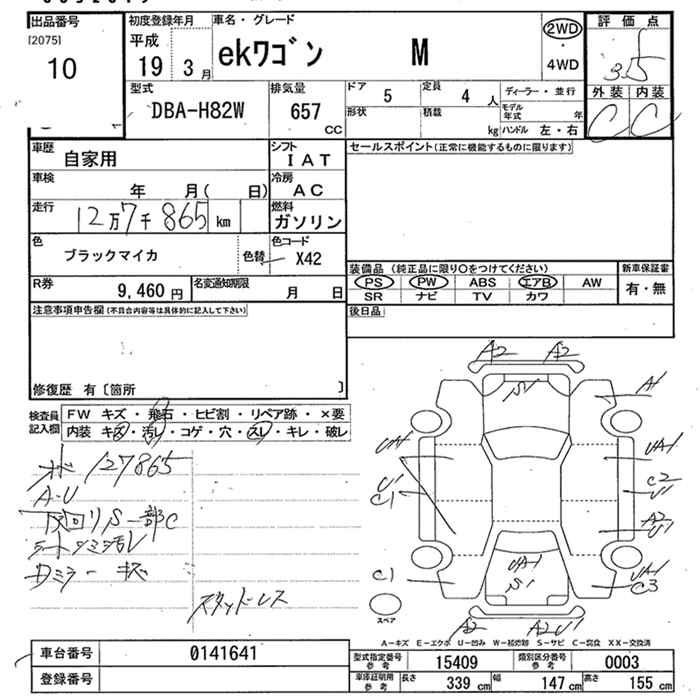 出品番号
[2075]
10
初度登録年月
平成
19 3月
車名・グレード
ekワゴン M
2WD
4WD
評価点
3.5
外装 内装
C C
型式
DBA-H82W
排気量
657
CC
ドア
5
定員
4 人
形状
積載
kg
ディーラー・並行
モデル年式 年
ハンドル 左・右
車歴
自家用
シフト
IAT
車検
年 月( 日)
冷房
AC
走行
12万7千865 km
燃料
ガソリン
色
ブラックマイカ
色替
色コード
X42
R券
9,460 円
名変通知期限
月 日
セールスポイント(正常に機能するものに限ります)
装備品 (純正品に限り○をつけてください)
新車保証書
PS PW ABS エアB AW
SR ナビ TV カワ
有・無
後日品
注意事項申告欄(不具合内容等は具体的に記入して下さい)
修復歴 有〔箇所 〕
検査員記入欄
FW キズ・飛石・ヒビ割・リペア跡・×要
内装 キズ・汚レ・コゲ・穴・スレ・キレ・破レ
127865
A-U
下回りS一部C
シートシミ汚レ
Dミラーキズ
スタッドレス
A2 A2
S1
A1
UA1
UA1
U1
C1
C2
U1
A2
U1
UA1
S1
C1
UA1
C3
A2 A2U1
スペア
A-キズ E-エクボ U-凹み W-補修跡 S-サビ C-腐食 XX-交換済
車台番号
0141641
登録番号
型式指定番号
参考
15409
類別区分番号
参考
0003
車庫証明用
参考
長さ 339 cm
幅 147 cm
高さ 155 cm